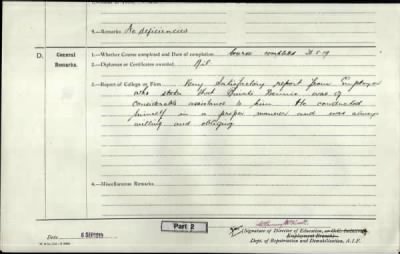 4.—Remarks. No deficiencies
D. General Remarks.
1.—Whether Course completed and Date of completion. Course completed
2.—Diplomas or Certificates awarded. Nil
3.—Report of College or Firm Very satisfactory report from Employer
who states that Private was of
considerable assistance to him. He conducted
himself in a proper manner and was always
willing and obliging
4.—Miscellaneous Remarks.
Date
Part 2
(Signature of Director of Education,
Employment Branch)
Dept. of Repatriation and Demobilization, A.I.F.